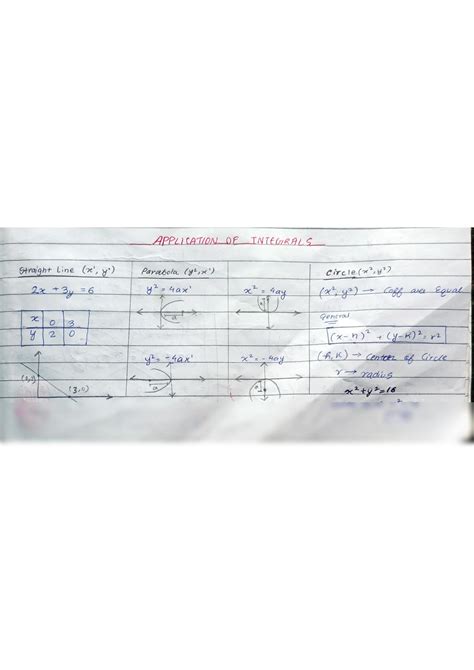 APPLICATION OF INTEGRALS
Straight Line (x', y')
2x + 3y = 6
x 0 3
y 2 0
(3,0)
Parabola (y², x')
y² = 4ax'
a
y² = -4ax'
a
x² = 4ay
a
x² = -4ay
a
Circle (x², y²)
(x², y²) → Coff are Equal
General
(x-h)² + (y-k)², r²
(h, k) → Center of Circle
r → radius
x²+y²=16